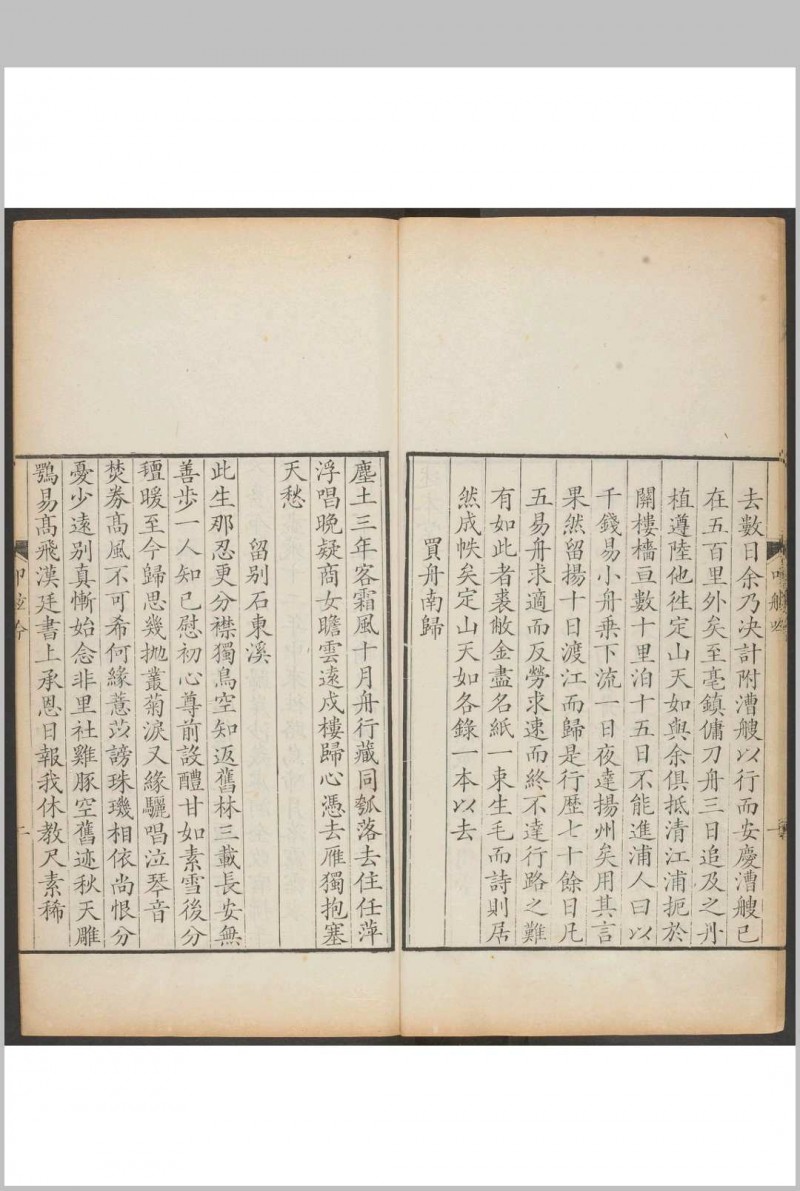 去數日余乃决計附漕艘以行而安慶漕艘已
在五百里外矣至亳鎮傭刀舟三日追及之丹
植遵陸他徃定山天如與余俱抵清江浦扼於
閘樓檣亘數十里泊十五日不能進浦人曰以
千錢易小舟乗下流一日夜達揚州矣用其言
果然留揚十日渡江而歸是行歴七十餘日凡
五易舟求適而反勞求速而終不達行路之難
有如此者裘敝金盡名紙一束生毛而詩則居
然成帙矣定山天如各錄一本以去
買舟南歸
塵土三年客霜風十月舟行藏同瓠落去住任萍
浮唱晚疑商女瞻雲遠戍樓歸心憑去雁獨抱塞
天愁
留别石東溪
此生那忍更分襟獨鳥空知返舊林三載長安無
善步一人知己慰初心尊前設醴甘如素雪後分
氊暖至今歸思幾抛叢菊淚又緣驪唱泣琴音
焚券髙風不可希何緣薏苡謗珠璣相依尚恨分
憂少遠别真慚始念非里社雞豚空舊迹秋天雕
鶚易髙飛漢廷書上承恩日報我休教尺素稀